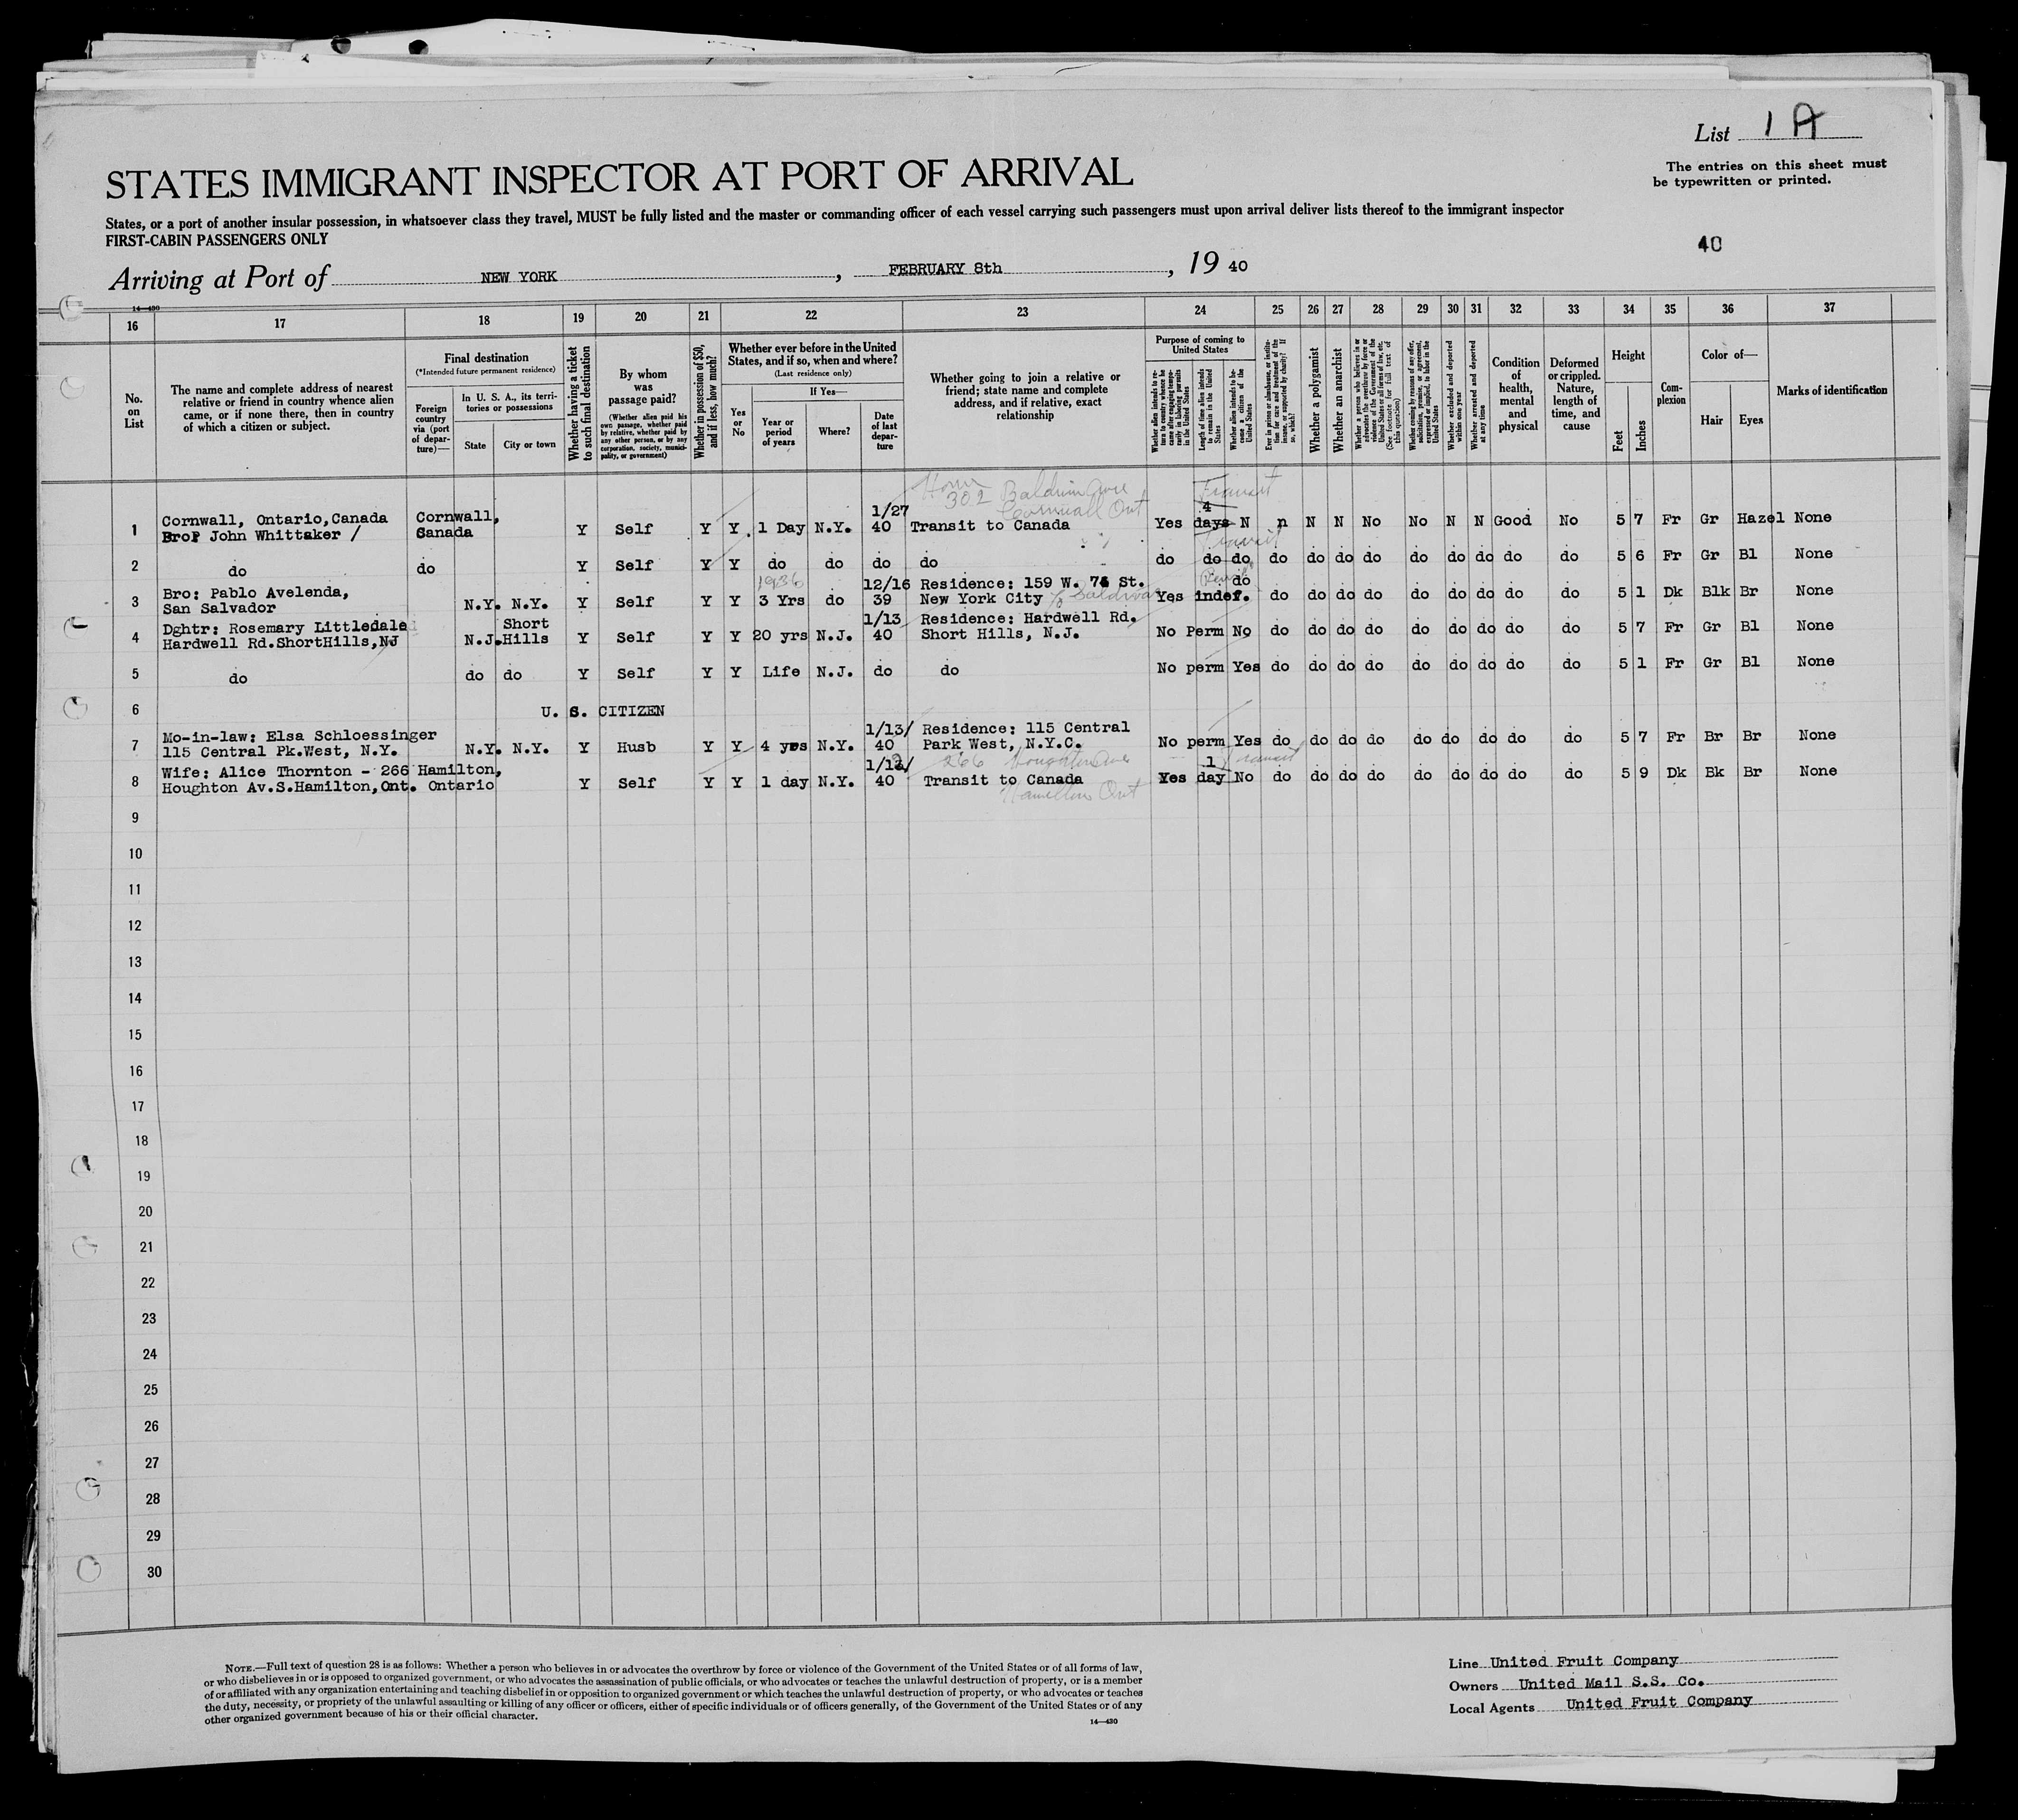 List 1 A
The entries on this sheet must
be typewritten or printed.
STATES IMMIGRANT INSPECTOR AT PORT OF ARRIVAL
States, or a port of another insular possession, in whatsoever class they travel, MUST be fully listed and the master or commanding officer of each vessel carrying such passengers must upon arrival deliver lists thereof to the immigrant inspector
FIRST-CABIN PASSENGERS ONLY
40
Arriving at Port of NEW YORK, FEBRUARY 8th, 19 40
14—430
16 17 18 19 20 21 22 23 24 25 26 27 28 29 30 31 32 33 34 35 36 37
No. on List
The name and complete address of nearest relative or friend in country whence alien came, or if none there, then in country of which a citizen or subject.
Final destination
(*Intended future permanent residence)
Foreign country via (port of departure)—
In U. S. A., its territories or possessions
State
City or town
Whether having a ticket to such final destination
By whom was passage paid?
(Whether alien paid his own passage, whether paid by relative, whether paid by any other person, or by any corporation, society, municipality, or government)
Whether in possession of $50, and if less, how much?
Whether ever before in the United States, and if so, when and where?
(Last residence only)
Yes or No
If Yes—
Year or period of years
Where?
Date of last departure
Whether going to join a relative or friend; state name and complete address, and if relative, exact relationship
Purpose of coming to United States
Whether alien intends to return to country whence he came after engaging temporarily in laboring pursuits in the United States
Length of time alien intends to remain in the United States
Whether alien intends to become a citizen of the United States
Ever in prison or almshouse, or institution for care and treatment of the insane, or supported by charity? If so, which?
Whether a polygamist
Whether an anarchist
Whether a person who believes in or advocates the overthrow by force or violence of the Government of the United States or all forms of law, etc. (See footnote for full text of this question)
Whether coming by reasons of any offer, solicitation, promise, or agreement, expressed or implied, to labor in the United States
Whether excluded and deported within one year
Whether arrested and deported at any time
Condition of health, mental and physical
Deformed or crippled. Nature, length of time, and cause
Height
Feet
Inches
Complexion
Color of—
Hair
Eyes
Marks of identification
Home 302 Baldwin Ave Cornwall Ont Transit
1/27 4
Cornwall, Ontario, Canada Cornwall,
1 Bro: John Whittaker / Canada Y Self Y Y 1 Day N.Y. 40 Transit to Canada Yes days N n N N No No N N Good No 5 7 Fr Gr Hazel None
Transit
2 do do Y Self Y Y do do do do do do do do do do do do do do do do 5 6 Fr Gr Bl None
1936
Bro: Pablo Avelenda, 12/16 Residence: 159 W. 74 St. do
3 San Salvador N.Y. N.Y. Y Self Y Y 3 Yrs do 39 New York City Yes indef. do do do do do do do do do 5 1 Dk Blk Br None
Dghtr: Rosemary Littledale Short 1/13 Residence: Hardwell Rd.
4 Hardwell Rd.ShortHills,NJ N.J. Hills Y Self Y Y 20 yrs N.J. 40 Short Hills, N.J. No Perm No do do do do do do do do do 5 7 Fr Gr Bl None
5 do do do Y Self Y Y Life N.J. do do No perm Yes do do do do do do do do do 5 1 Fr Gr Bl None
6 U. S. CITIZEN
Mo-in-law: Elsa Schloessinger 1/13/ Residence: 115 Central
7 115 Central Pk.West, N.Y. N.Y. N.Y. Y Husb Y Y 4 yrs N.Y. 40 Park West, N.Y.C. No perm Yes do do do do do do do do do 5 7 Fr Br Br None
266 Houghton Ave Transit
Wife: Alice Thornton - 266 Hamilton, 1/13/ 1
8 Houghton Av.S.Hamilton,Ont. Ontario Y Self Y Y 1 day N.Y. 40 Transit to Canada Yes day No do do do do do do do do do 5 9 Dk Bk Br None
Hamilton Ont
9
10
11
12
13
14
15
16
17
18
19
20
21
22
23
24
25
26
27
28
29
30
NOTE.—Full text of question 28 is as follows: Whether a person who believes in or advocates the overthrow by force or violence of the Government of the United States or of all forms of law,
or who disbelieves in or is opposed to organized government, or who advocates the assassination of public officials, or who advocates or teaches the unlawful destruction of property, or is a member
of or affiliated with any organization entertaining and teaching disbelief in or opposition to organized government or which teaches the unlawful destruction of property, or who advocates or teaches
the duty, necessity, or propriety of the unlawful assaulting or killing of any officer or officers, either of specific individuals or of officers generally, of the Government of the United States or of any
other organized government because of his or their official character.
14—430
Line United Fruit Company
Owners United Mail S.S. Co.
Local Agents United Fruit Company